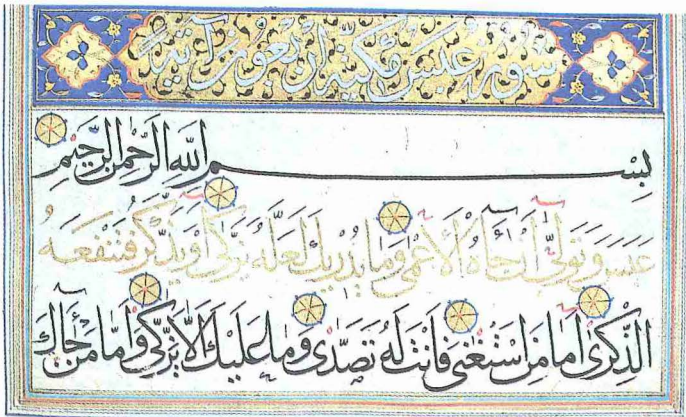 سورة عبس مكية اربعون آية
بِسْمِ اللَّهِ الرَّحْمٰنِ الرَّحِيْمِ
عَبَسَ وَتَوَلّٰى اَنْ جَآءَهُ الْاَعْمٰى وَمَا يُدْرِيكَ لَعَلَّهُ يَزَّكّٰى اَوْ يَذَّكَّرُ فَتَنْفَعَهُ
الذِّكْرٰى اَمَّا مَنِ اسْتَغْنٰى فَاَنْتَ لَهُ تَصَدّٰى وَمَا عَلَيْكَ اَلَّا يَزَّكّٰى وَاَمَّا مَنْ جَآءَكَ